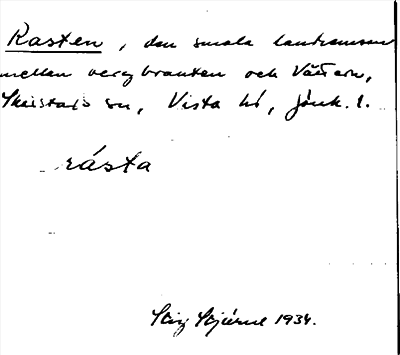 Rasten, den smala landremsan
mellan bergbranten och Vättern,
Skärstads sn, Vista hd, Jönk. l.
rásta
Stig 1934.